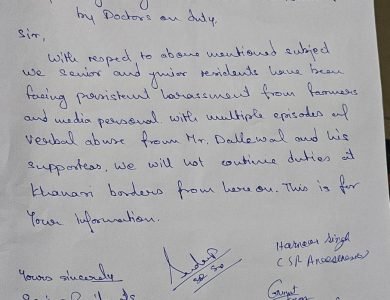 by Doctors on duty.
Sir,
With respect to above mentioned subject
we senior and junior residents have been
facing persistent harassment from farmers
and media personal with multiple episodes of
verbal abuse from Mr. Dallewal and his
supporters. we will not continue duties at
Khanari borders from here on. This is for
Your Information.
Harnoor Singh
SR
CSR
Yours sincerely